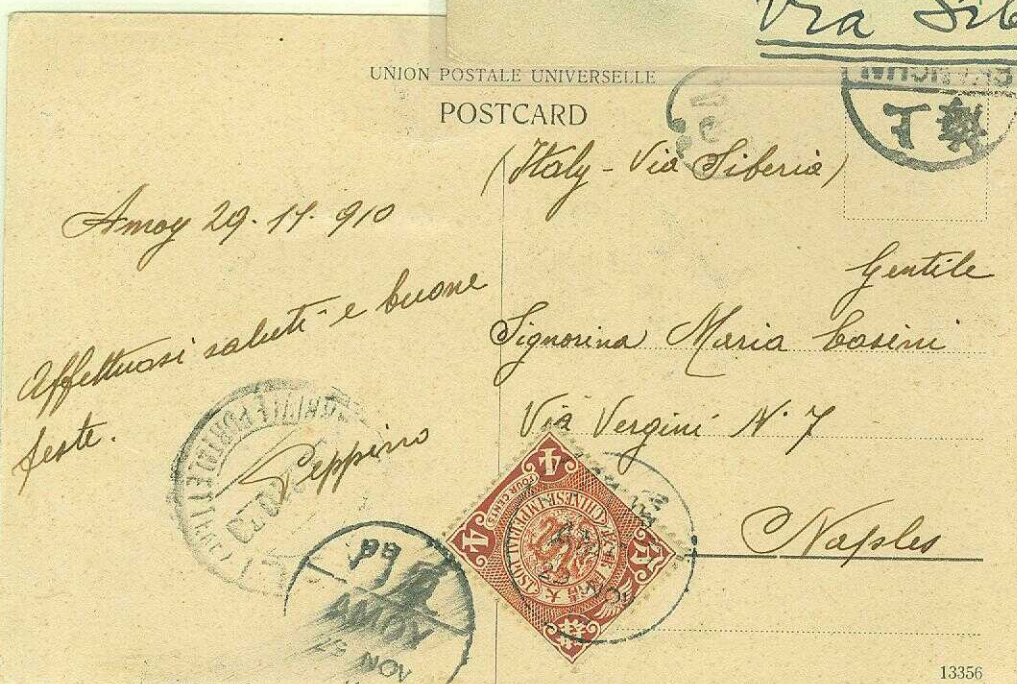 Via Sib
UNION POSTALE UNIVERSELLE
POSTCARD
(Italy - Via Siberia)
Amoy 29. 11. 910
Affettuosi saluti e buone
feste.
Peppino
Gentile
Signorina Maria Casini
Via Vergini N. 7
Naples
4
FOUR CENTS
CHINESE IMPERIAL POST
大清
4
AMOY
NOV
NOV
13356